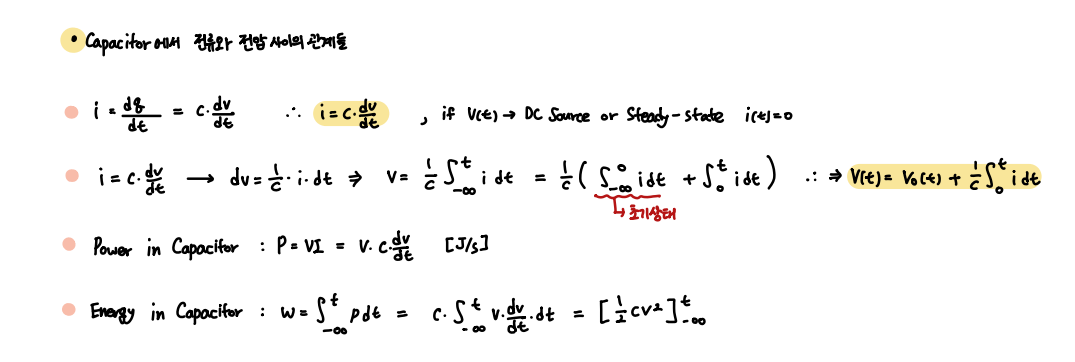 • Capacitor에서 전류와 전압 사이의 관계들
i = dq/dt = C·dv/dt ∴ i = C·dv/dt , if V(t) → DC Source or Steady-state i(t)=0
i = C·dv/dt → dv = 1/C · i · dt ⇒ V = 1/C ∫_{-∞}^{t} i dt = 1/C ( ∫_{-∞}^{0} i dt + ∫_{0}^{t} i dt ) ∴ ⇒ V(t) = V₀(t) + 1/C ∫_{0}^{t} i dt
↳ 초기상태
Power in Capacitor : P = VI = V · C·dv/dt [J/s]
Energy in Capacitor : W = ∫_{-∞}^{t} p dt = C · ∫_{-∞}^{t} v · dv/dt · dt = [ 1/2 CV² ]_{-∞}^{t}